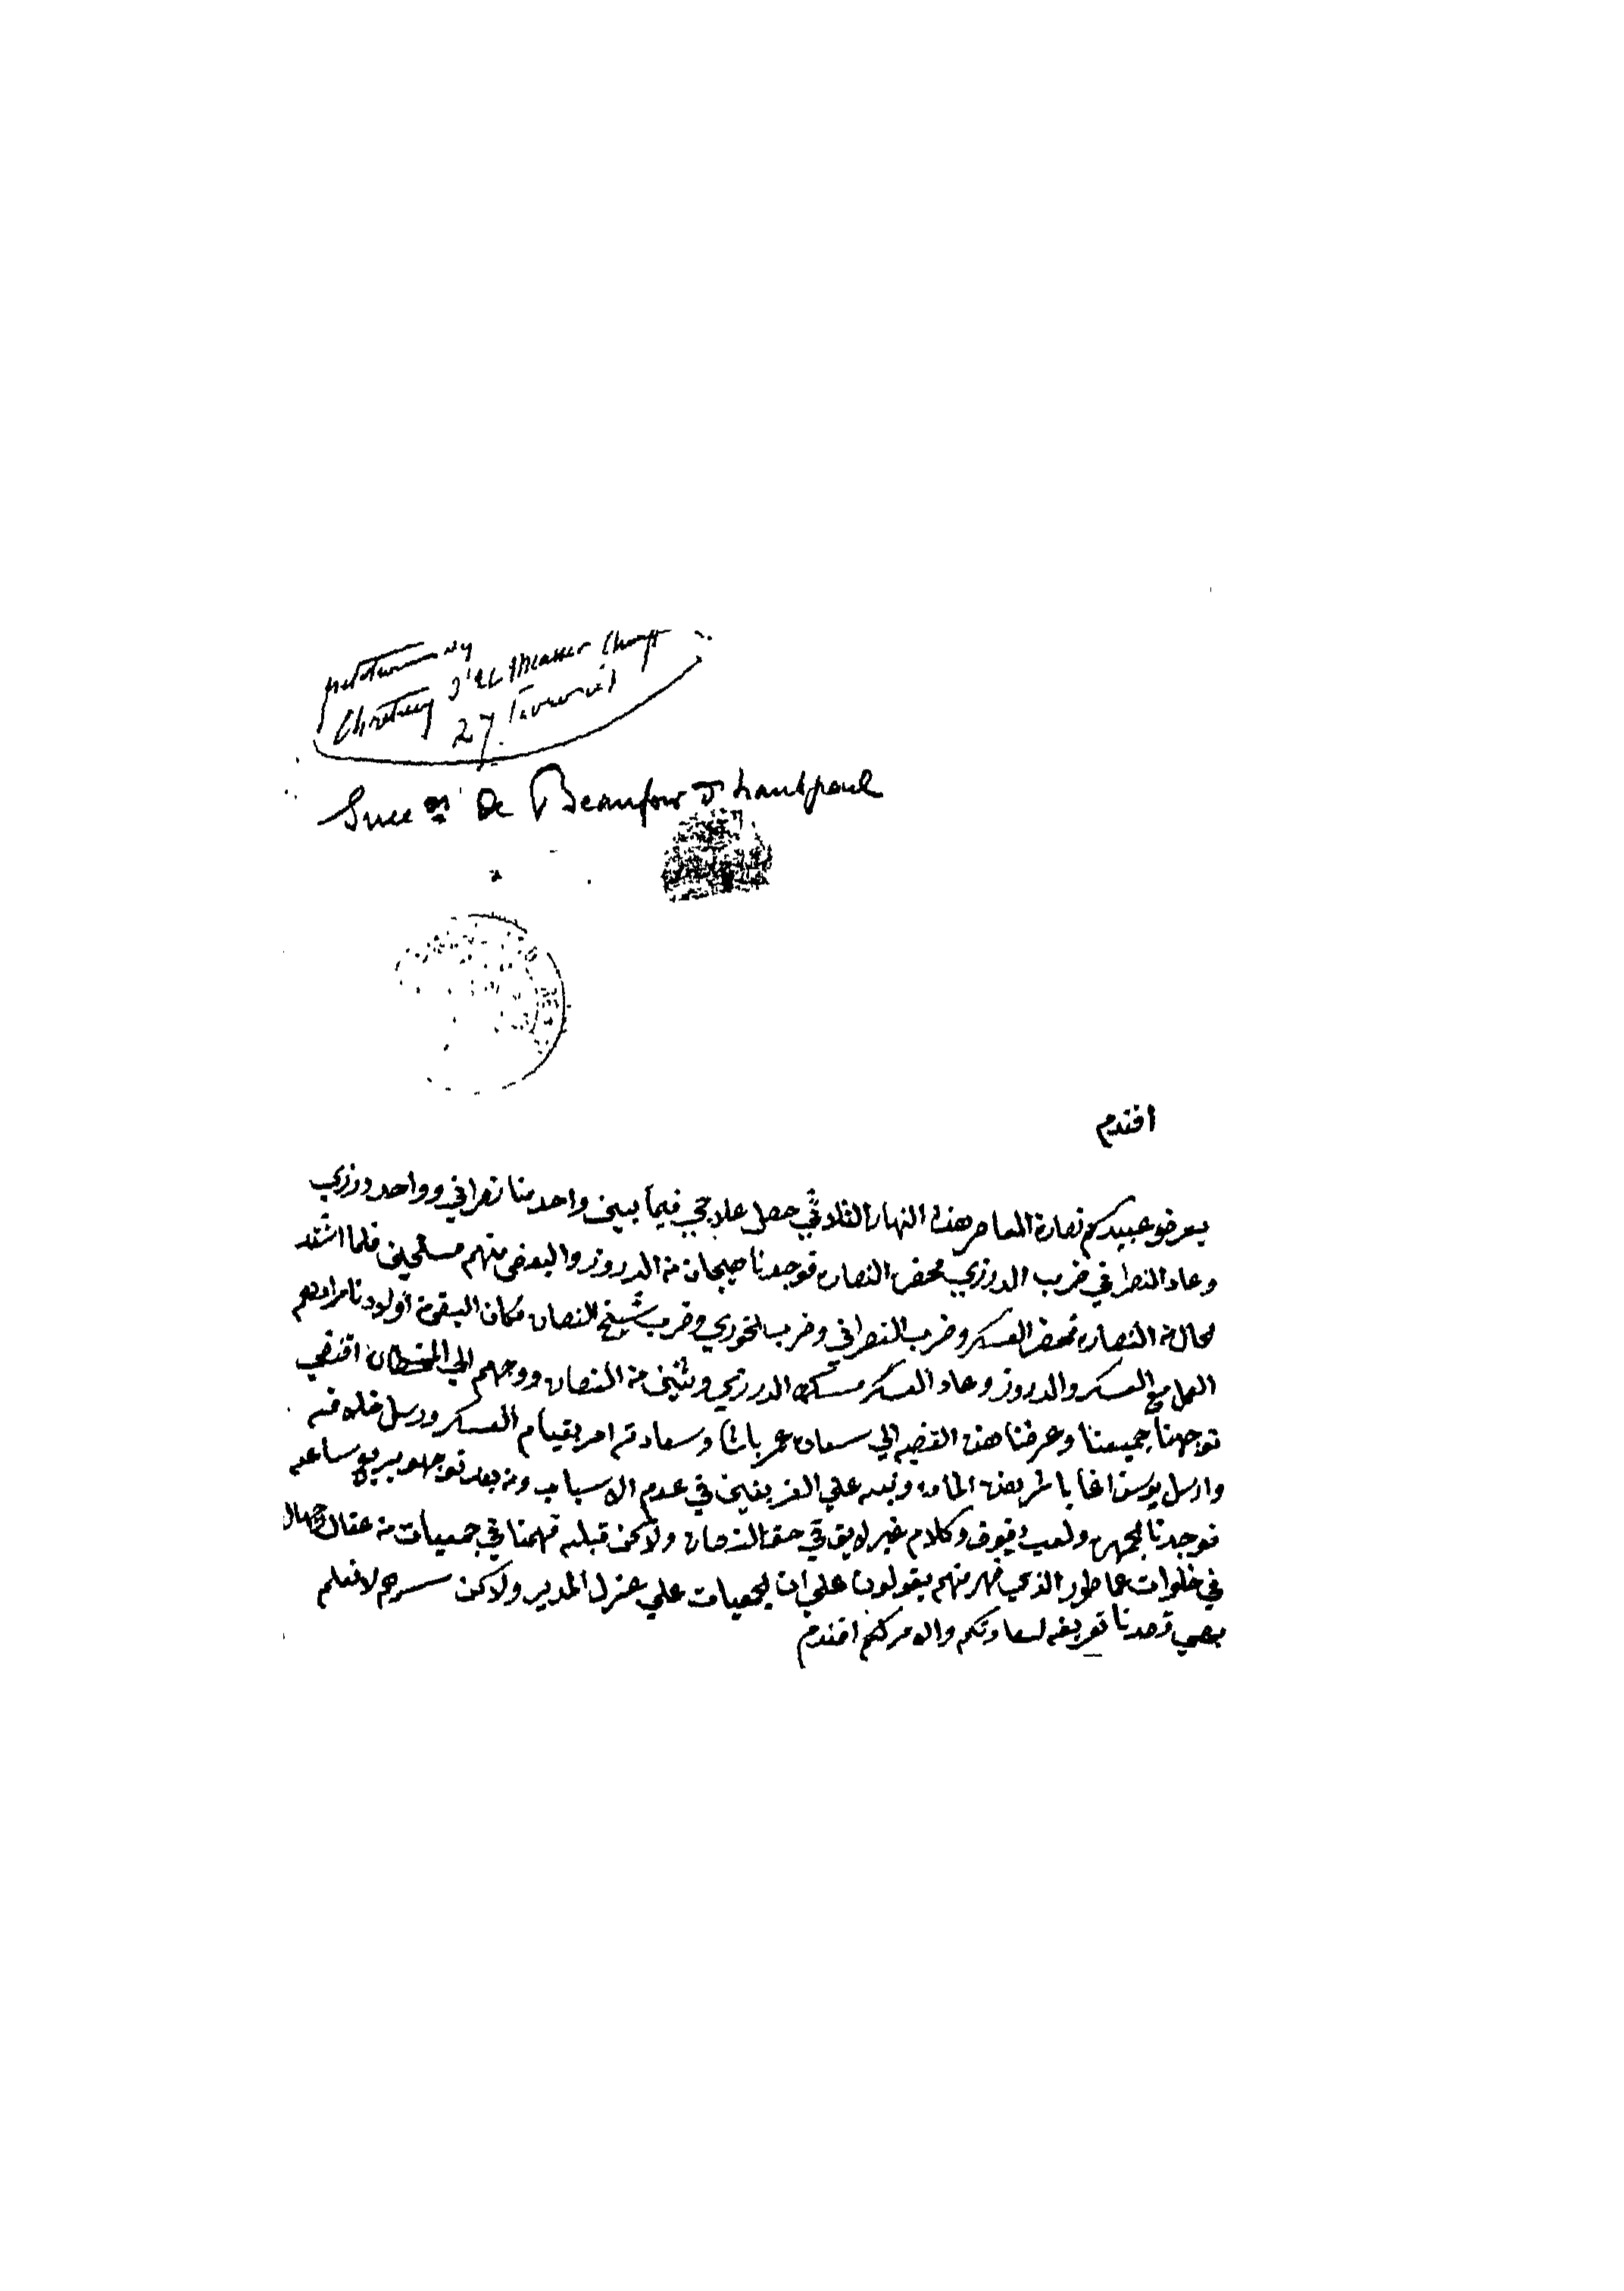 petition des
Chretiens d'El Measser Chouf
27 Fevrier 61
Succ on De Beaufort d'hautpoul
افندم
يعرضو عبيدكم نصارة المعاصر هذا النهار الثلاث في حصل علاججي فيما بين واحد منا نصراني وواحد درزي
وعاد النصراني ضرب الدرزي فحضر النصاره فوجدنا هيجان من الدروز والبعض منهم مسلحين فلما اشتد
الحال من النصاره فحضر العسكر وضرب النصراني وضرب الخوري وضرب شيخ النصاره فكان البقو من اولادنا مرادهم
العمل مع العسكر والدروز وعاد العسكر مسك الدرزي وثنين من النصاره ووجههم الي المختاره اقتضي
توجهنا جميعنا وعرضنا هذه القضيه الي سعادة عمر باشا وسعادته امر بقيام العسكر ورسل خلافه
وارسل يوسف اغا بالمربض الماده ونبه علي الفريقين في عدم الاسباب ومن بعد توجهو بربع ساعه
فوجدنا الجهره ولعب وكلام غير لايق في حق النصاره ولاكن قبله فهمنا في جمعيات من عقال وجهال
في خلوات عماطور الذي ظهر منهم يقولون علي ان الجمعيات علي عزل المدير ولاكن سرهم لا نعلم
بهي قصدنا تعريفه لسعادتكم والامر لكم افندم